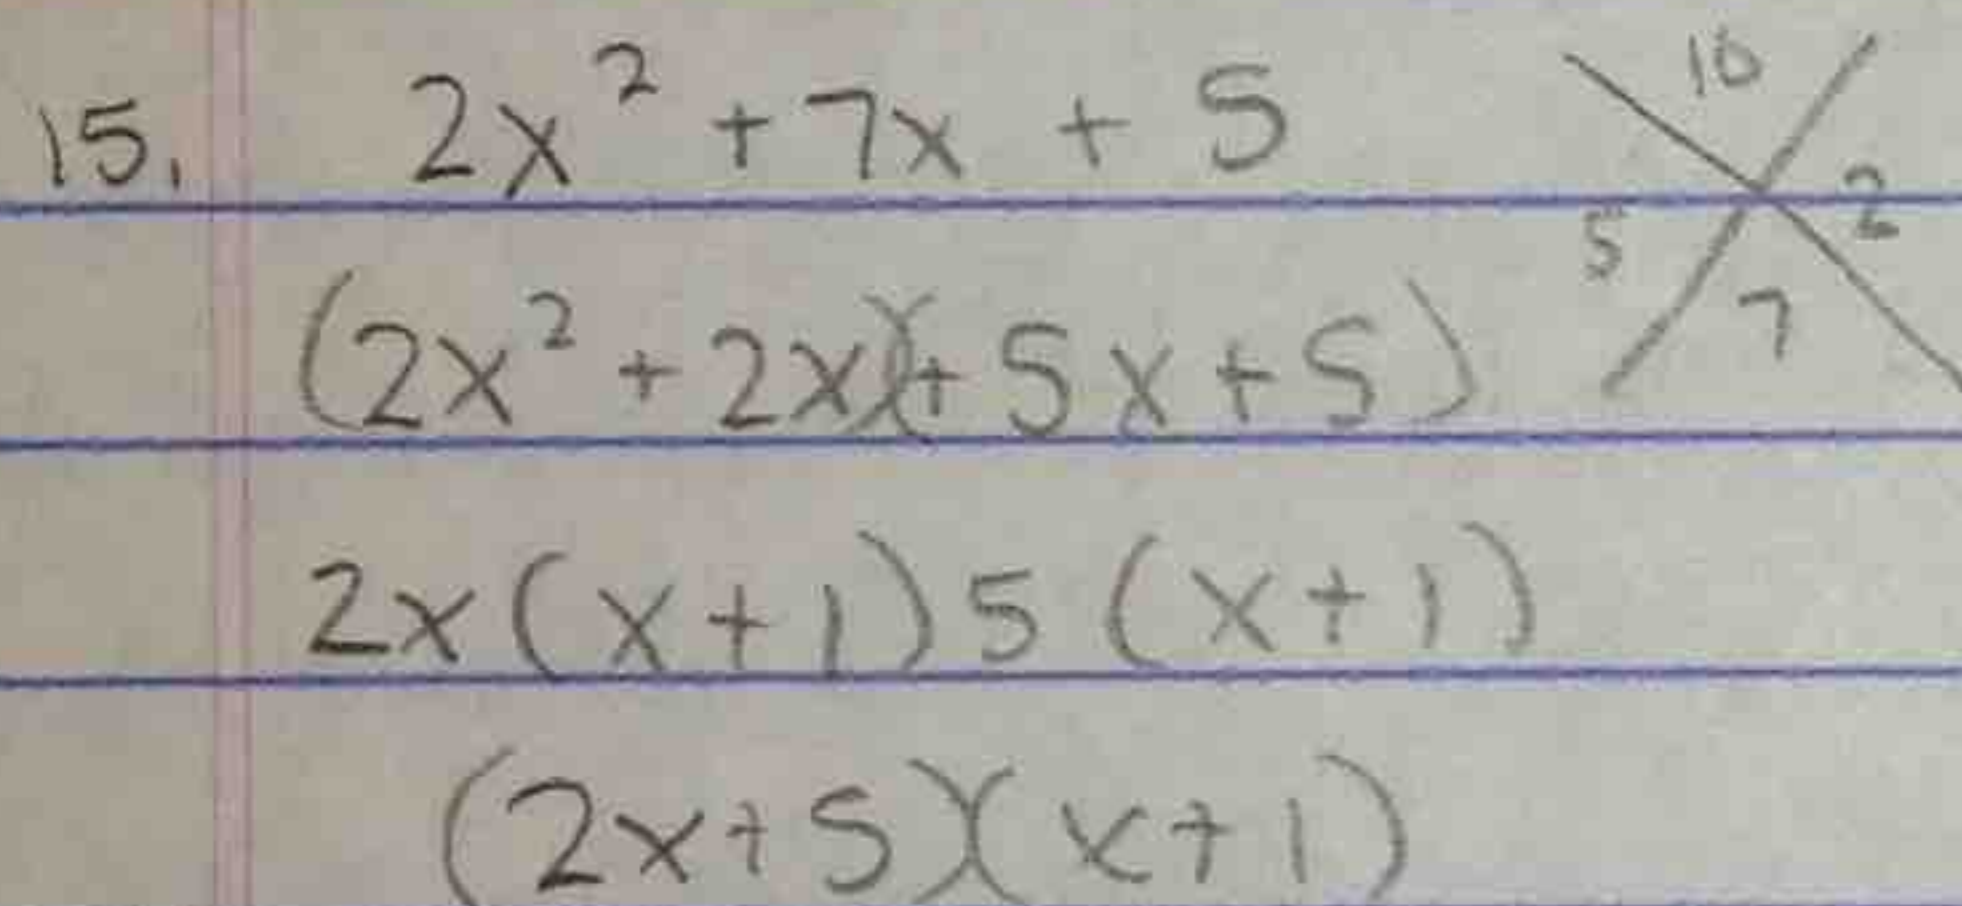 15. 2x² + 7x + 5
10
5 2
7
(2x² + 2x)(+ 5x + 5)
2x(x + 1) 5(x + 1)
(2x + 5)(x + 1)